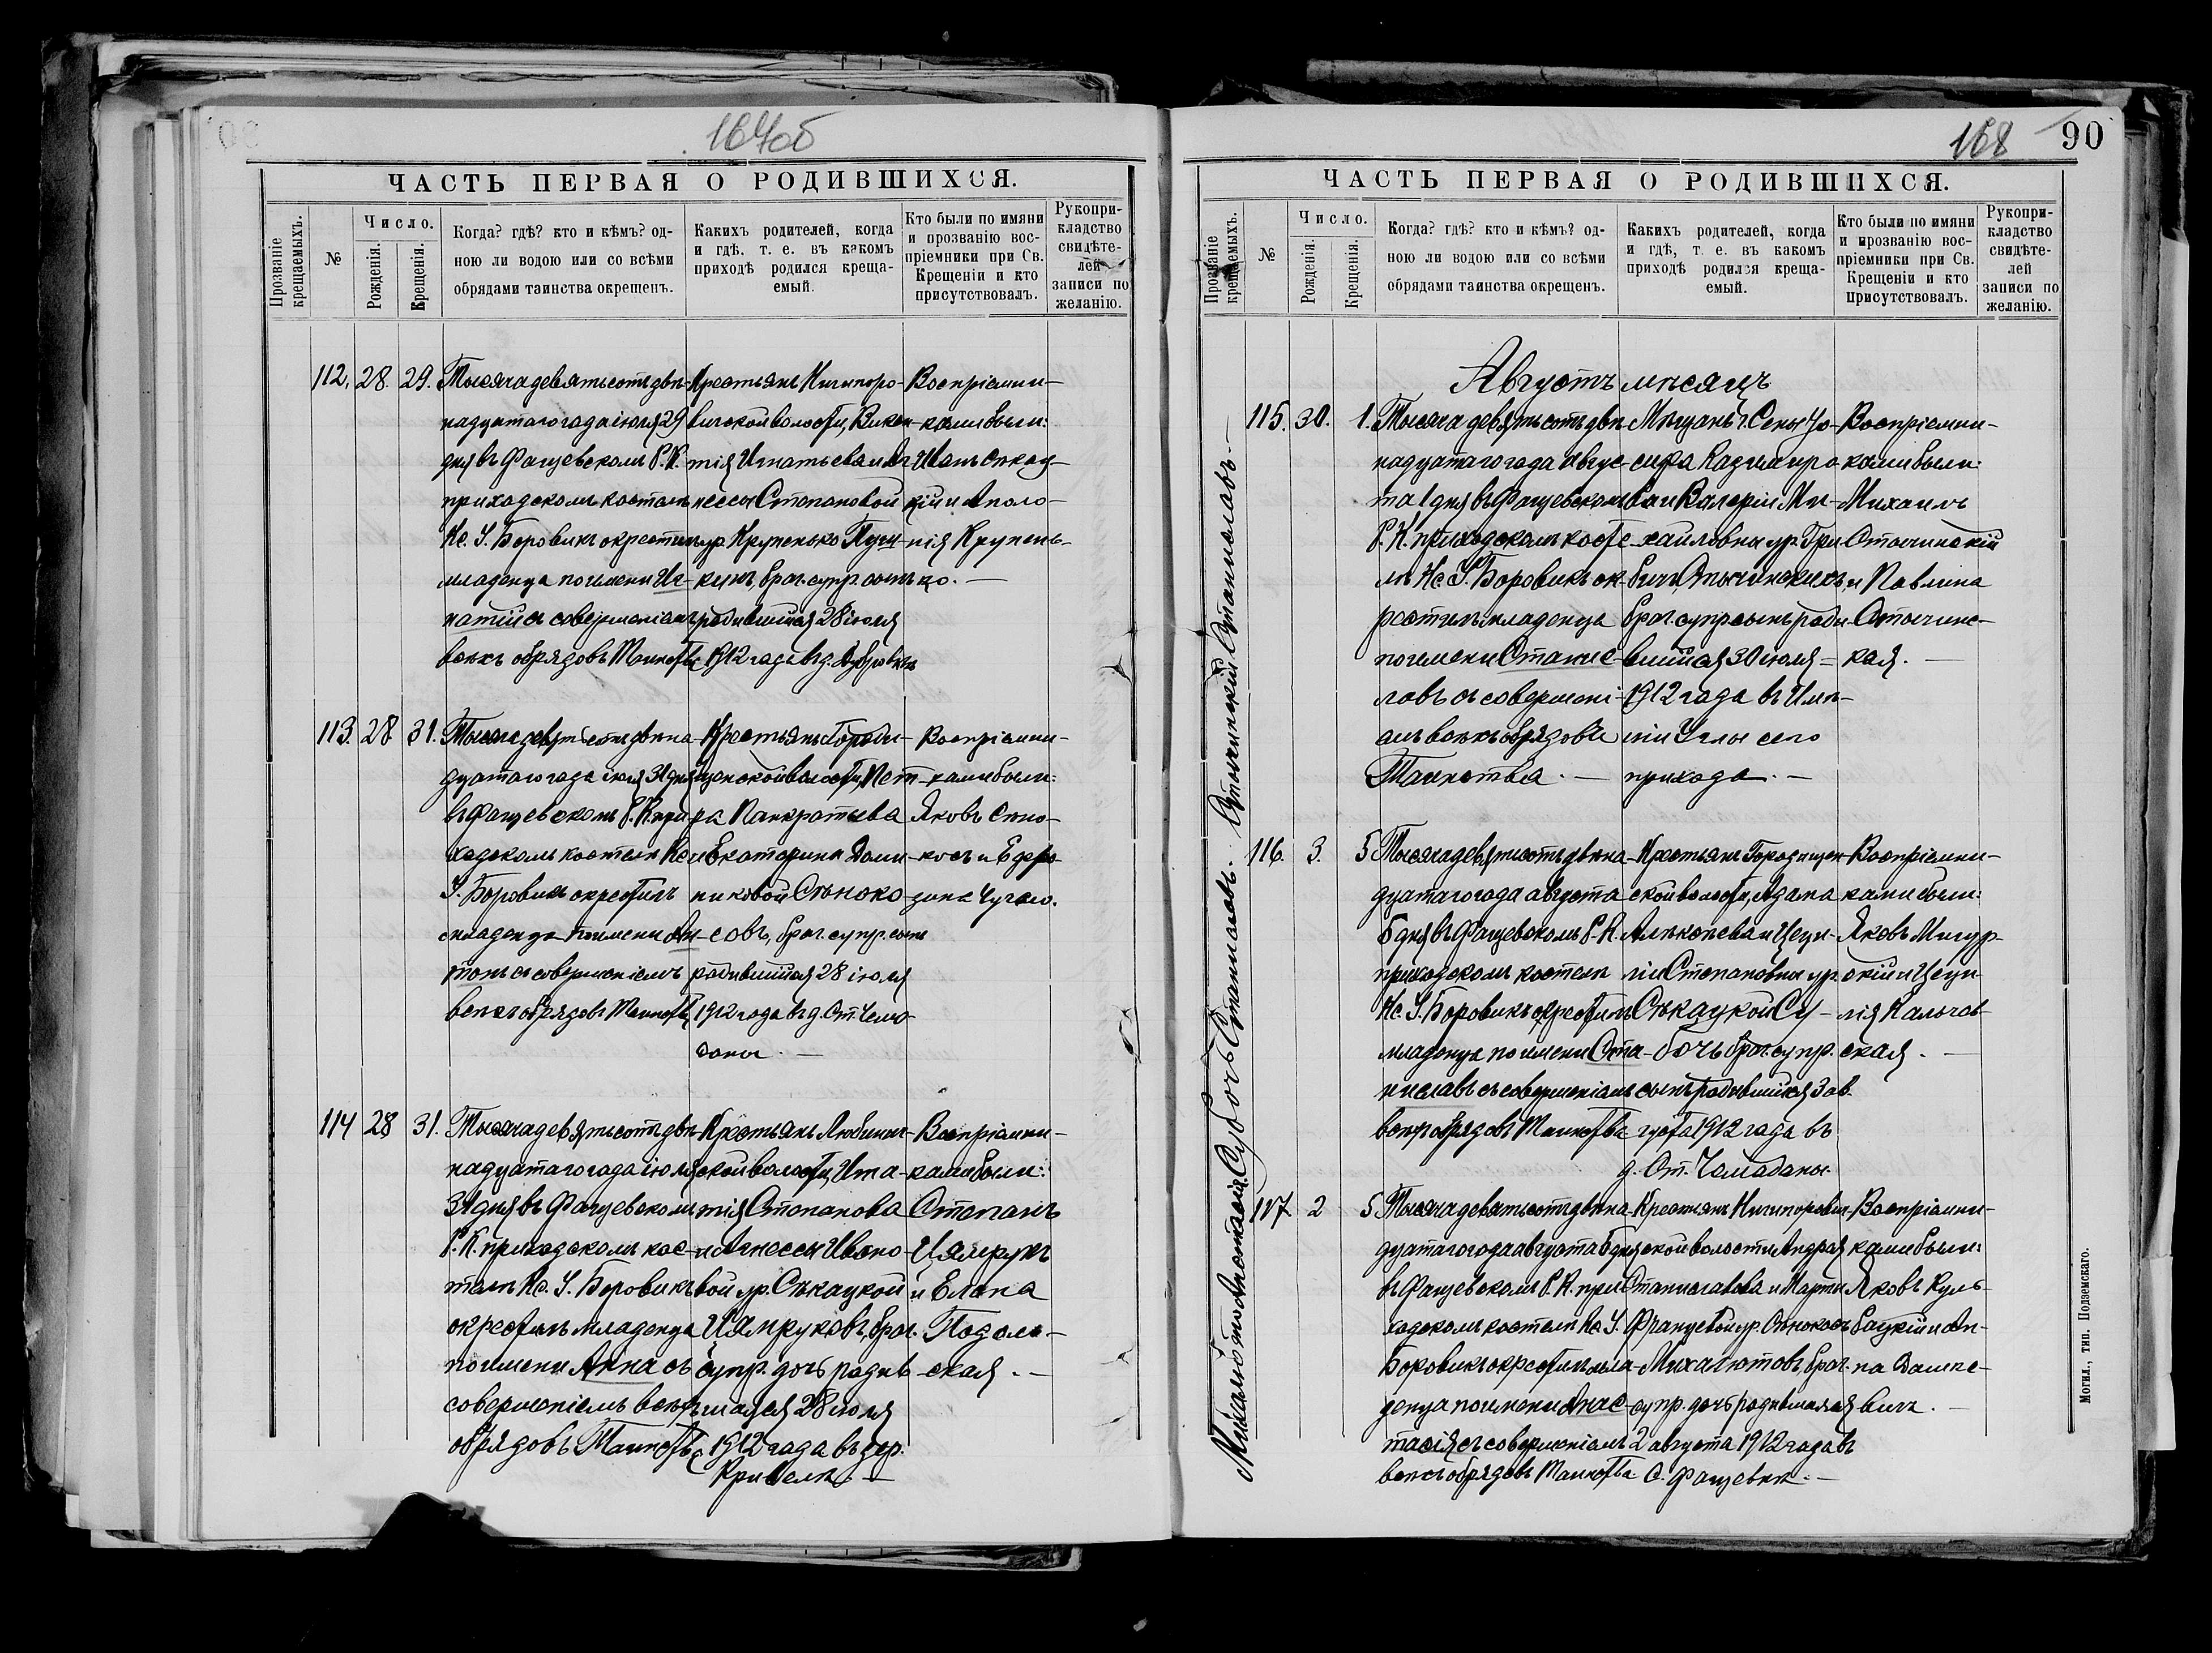 167об
ЧАСТЬ ПЕРВАЯ О РОДИВШИХСЯ.
Прозваніе крещаемыхъ.
№
Число.
Рожденія.
Крещенія.
Когда? гдѣ? кто и кѣмъ? од-
ною ли водою или со всѣми
обрядами таинства окрещенъ.
Какихъ родителей, когда
и гдѣ, т. е. въ какомъ
приходѣ родился креща-
емый.
Кто были по имяни
и прозванію вос-
пріемники при Св.
Крещеніи и кто
присутствовалъ.
Рукопри-
кладство
свидѣте-
лей
записи по
желанію.
112. 28. 29.
Тысяча девятьсотъ двѣ-
надцатаго года іюля 29
дня въ Фащевскомъ Р. К.
приходскомъ костелѣ
Кс. І. Боровикъ окрестилъ
младенца по имени Иг-
натій съ совершеніемъ
всѣхъ обрядовъ Таинства
Крестьянъ Ничипоро-
вичской волости, Викен-
тія Игнатьева и Аг-
нессы Степановой
ур. Крупенько
бр. супр. сынъ
родившійся 28 іюля
1912 года въ д. Дубровкѣ
Воспріемни-
ками были:
Иванъ Секац-
кій и Аполо-
нія Крупень-
ко.
113. 28 31.
Тысяча девятьсотъ двѣна-
дцатаго года іюля 31 дня
въ Фащевскомъ Р. К. при-
ходскомъ костелѣ Кс.
І. Боровикъ окрестилъ
младенца по имени Ан-
тонъ съ совершеніемъ
всѣхъ обрядовъ Таинства
Крестьянъ Городи-
щенской волости, Пет-
ра Панкратьева
и Екатерины Доми-
никовой Сѣноко-
совъ, брач. супр. сынъ
родившійся 28 іюля
1912 года въ д. Ст. Чемо-
даны.
Воспріемни-
ками были:
Яковъ Сѣно-
косъ и Ефро-
зина Чугало.
114 28 31.
Тысяча девятьсотъ двѣ-
надцатаго года іюля
31 дня въ Фащевскомъ
Р. К. приходскомъ кос-
телѣ Кс. І. Боровикъ
окрестилъ младенца
по имени Анна съ
совершеніемъ всѣхъ
обрядовъ Таинства
Крестьянъ
ской волости, Игна-
тія Степанова
и Агнессы Ивано-
вой ур. Сѣкацкой
Цямруковъ, брач.
супр. дочь родив-
шаяся 28 іюля
1912 года въ дер.
Воспріемни-
ками были:
Степанъ
Цямрукъ
и Елена
Подоль-
ская.
168
90
ЧАСТЬ ПЕРВАЯ О РОДИВШИХСЯ.
Прозваніе крещаемыхъ.
№
Число.
Рожденія.
Крещенія.
Когда? гдѣ? кто и кѣмъ? од-
ною ли водою или со всѣми
обрядами таинства окрещенъ.
Какихъ родителей, когда
и гдѣ, т. е. въ какомъ
приходѣ родился креща-
емый.
Кто были по имяни
и прозванію вос-
пріемники при Св.
Крещеніи и кто
присутствовалъ.
Рукопри-
кладство
свидѣте-
лей
записи по
желанію.
Августъ мѣсяцъ
Станиславъ.
115. 30. 1.
Тысяча девятьсотъ двѣ-
надцатаго года авгус-
та 1 дня въ Фащевскомъ
Р. К. приходскомъ косте-
лѣ Кс. І. Боровикъ ок-
рестилъ младенца
по имени Станис-
лавъ съ совершені-
емъ всѣхъ обрядовъ
Таинства.
Мѣщанъ г. Сены Іо-
сифа Казиміро-
ва и Валеріи Ми-
хайловны ур.
брач. супр. сынъ роди-
вшійся 30 іюля
1912 года въ Имѣ-
ніи Углы сего
прихода.
Воспріемни-
ками были:
Михаилъ
Стычинскій
и Павлина
Стычинс-
кая.
Суботь Станиславъ.
116. 3. 5
Тысяча девятьсотъ двѣна-
дцатаго года августа
5 дня въ Фащевскомъ Р. К.
приходскомъ костелѣ
Кс. І. Боровикъ окрестилъ
младенца по имени Ста-
ниславъ съ совершеніемъ
всѣхъ обрядовъ Таинства
Крестьянъ Городищен-
ской волости, Адама
и Цеци-
ліи Степановны ур.
Сѣкацкой Су-
бочь брач. супр.
сынъ родившійся 3 ав-
густа 1912 года въ
д. Ст. Чемаданы.
Воспріемни-
ками были:
Яковъ Мигур-
скій и Цеци-
лія Кальчев-
ская.
Анастасія
117 2 5
Тысяча девятьсотъ двѣна-
дцатаго года августа 5 дня
въ Фащевскомъ Р. К. при-
ходскомъ костелѣ Кс. І.
Боровикъ окрестилъ мла-
денца по имени Анас-
тасія съ совершеніемъ
всѣхъ обрядовъ Таинства
Крестьянъ Ничипорович-
ской волости Андрея
Станиславова и Марты
Францевой ур. Сѣнокосъ
брач.
супр. дочь родившаяся
2 августа 1912 года въ
с. Фащевкѣ.
Воспріемни-
ками были:
Яковъ Куль-
бацкій и Ан-
на Дашке-
вичъ.
Могил., тип. Подземскаго.